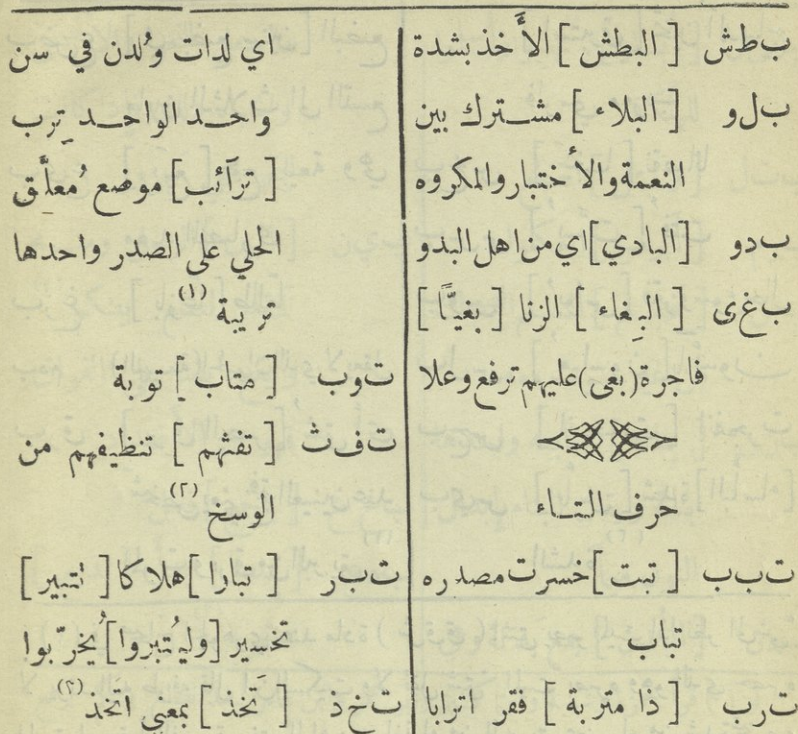 ب ط ش [ البطش ] الأخذ بشدة
ب ل و [ البلاء ] مشترك بين
النعمة والأختبار والمكروه
ب د و [البادي] اي من اهل البدو
ب غ ى [ البِغاء ] الزنا [ بغيًّا ]
فاجرة (بغى) عليهم ترفع وعلا
حرف التاء
ت ب ب [ تبت ] خسرت مصدره
تباب
ت ر ب [ ذا متربة ] فقر اترابا
اي لدات وُلدن في سن
واحد الواحد تِرب
[ ترآئب ] موضع مُعلَّق
الحلي على الصدر واحدها
تريبة (١)
ت و ب [ متاب ] توبة
ت ف ث [ تفثهم ] تنظيفهم من
الوسخ (٢)
ت ب ر [ تبارا ] هلاكا [ تتبير ]
تخسير [ وليُتبروا ] يُخرّبوا
ت خ ذ [ تَخذ ] بمعنى اتخذ (٣)